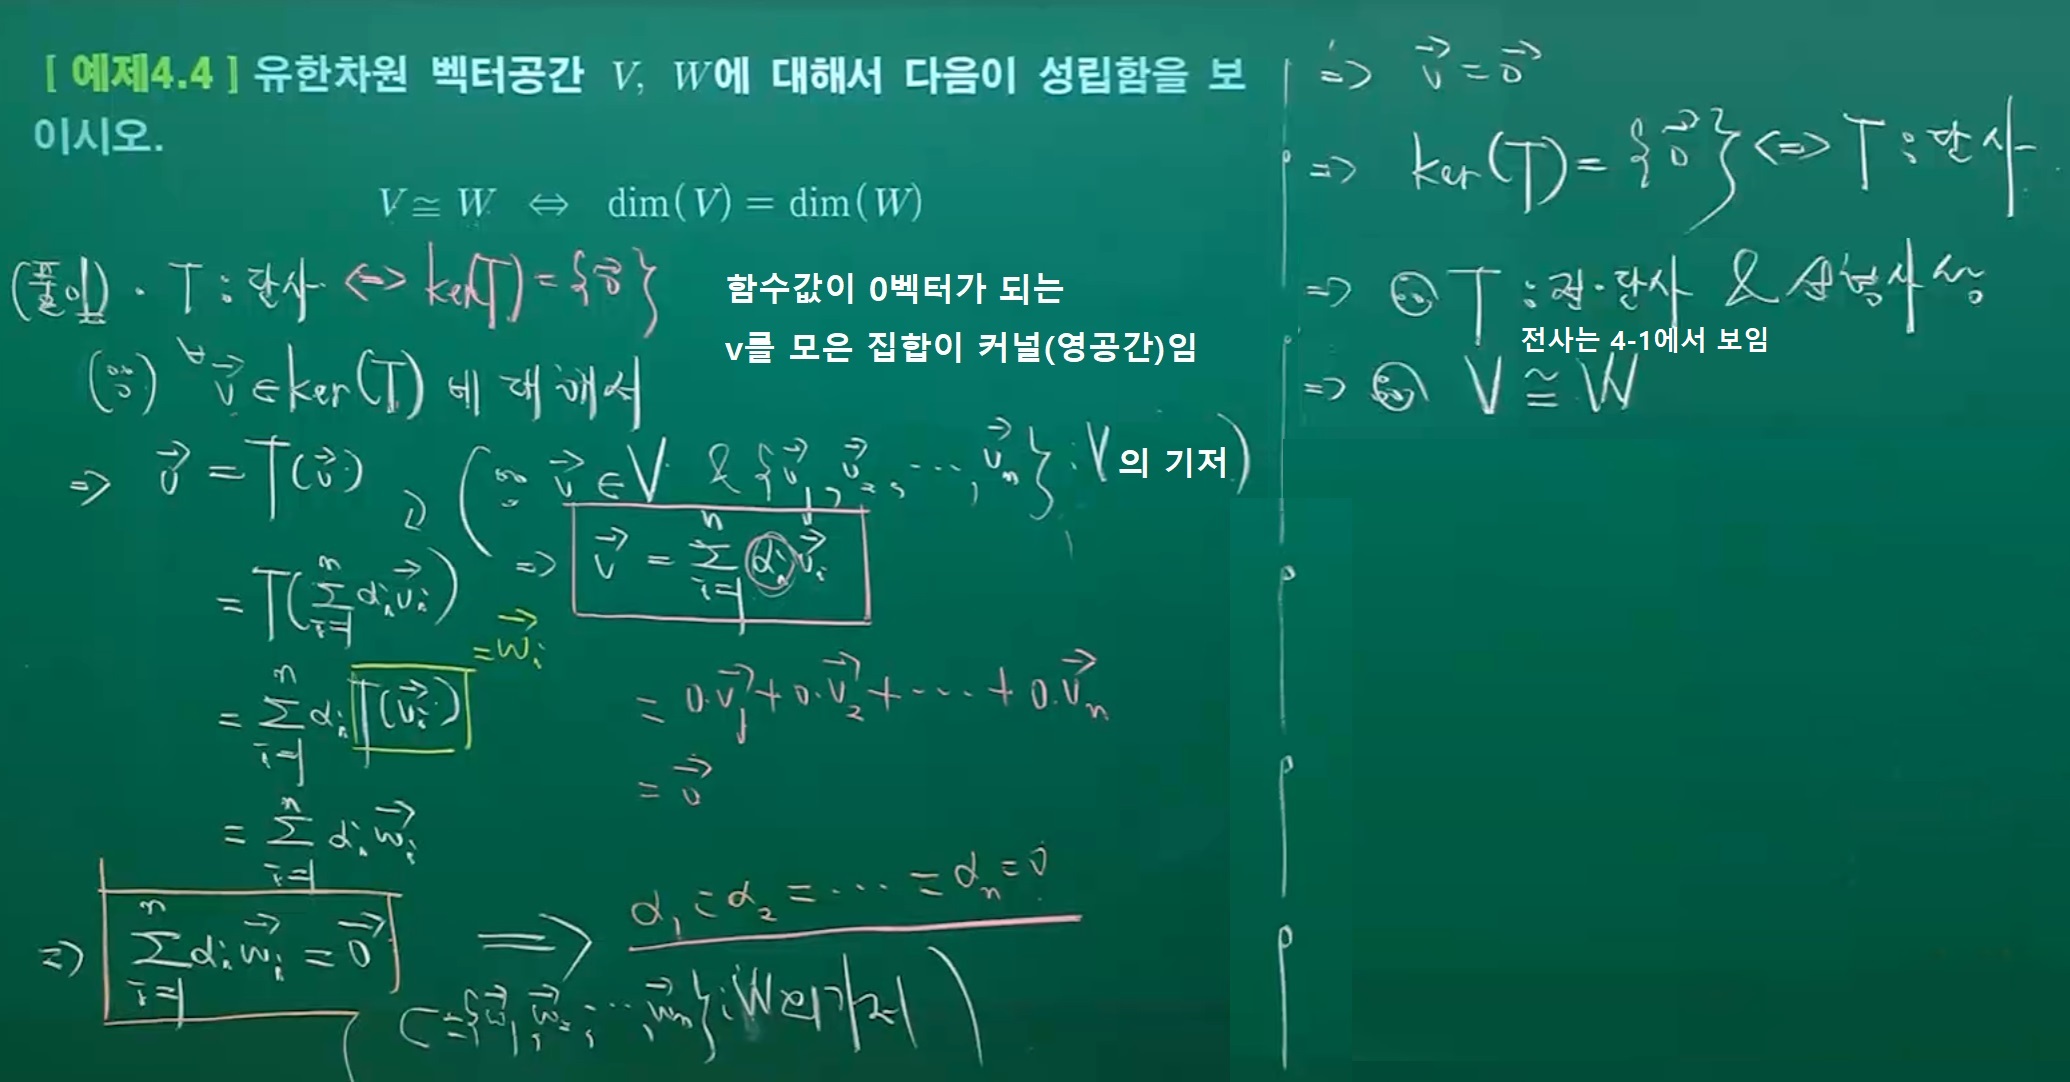 [ 예제4.4 ] 유한차원 벡터공간 V, W에 대해서 다음이 성립함을 보
이시오.
V ≅ W ⇔ dim(V) = dim(W)
(풀이) · T : 단사 <=> ker(T) = {0⃗}
함수값이 0벡터가 되는
v를 모은 집합이 커널(영공간)임
(∵) ∀v⃗ ∈ ker(T) 에 대해서
=> 0⃗ = T(v⃗) (∵ v⃗ ∈ V & {v⃗₁, v⃗₂, ⋯, v⃗ₙ} : V의 기저)
= T(∑ᵢ₌₁ⁿ αᵢv⃗ᵢ) => v⃗ = ∑ᵢ₌₁ⁿ αᵢv⃗ᵢ
= ∑ᵢ₌₁ⁿ αᵢ T(v⃗ᵢ) = w⃗ᵢ
= 0·v⃗₁ + 0·v⃗₂ + ⋯ + 0·v⃗ₙ
= 0⃗
= ∑ᵢ₌₁ⁿ αᵢw⃗ᵢ
=> ∑ᵢ₌₁ⁿ αᵢw⃗ᵢ = 0⃗ => α₁ = α₂ = ⋯ = αₙ = 0
C = {w⃗₁, w⃗₂, ⋯, w⃗ₙ} : W의 기저)
=> v⃗ = 0⃗
=> ker(T) = {0⃗} <=> T : 단사
=> ∴ T : 전·단사 & 선형사상
전사는 4-1에서 보임
=> ∴ V ≅ W